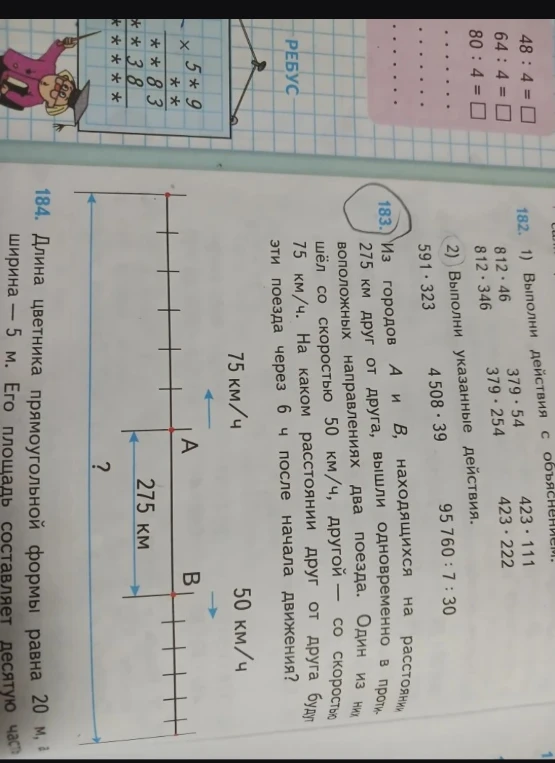 48 : 4 = □
64 : 4 = □
80 : 4 = □
РЕБУС
× 5*9
**
**83
**38
*****
182. 1) Выполни действия с объяснением.
812 · 46 379 · 54 423 · 111
812 · 346 379 · 254 423 · 222
2) Выполни указанные действия.
591 · 323 4 508 · 39 95 760 : 7 : 30
183. Из городов А и В, находящихся на расстоянии
275 км друг от друга, вышли одновременно в проти-
воположных направлениях два поезда. Один из них
шёл со скоростью 50 км/ч, другой — со скоростью
75 км/ч. На каком расстоянии друг от друга будут
эти поезда через 6 ч после начала движения?
75 км/ч 50 км/ч
А В
275 км
?
184. Длина цветника прямоугольной формы равна 20 м,
ширина — 5 м. Его площадь составляет десятую